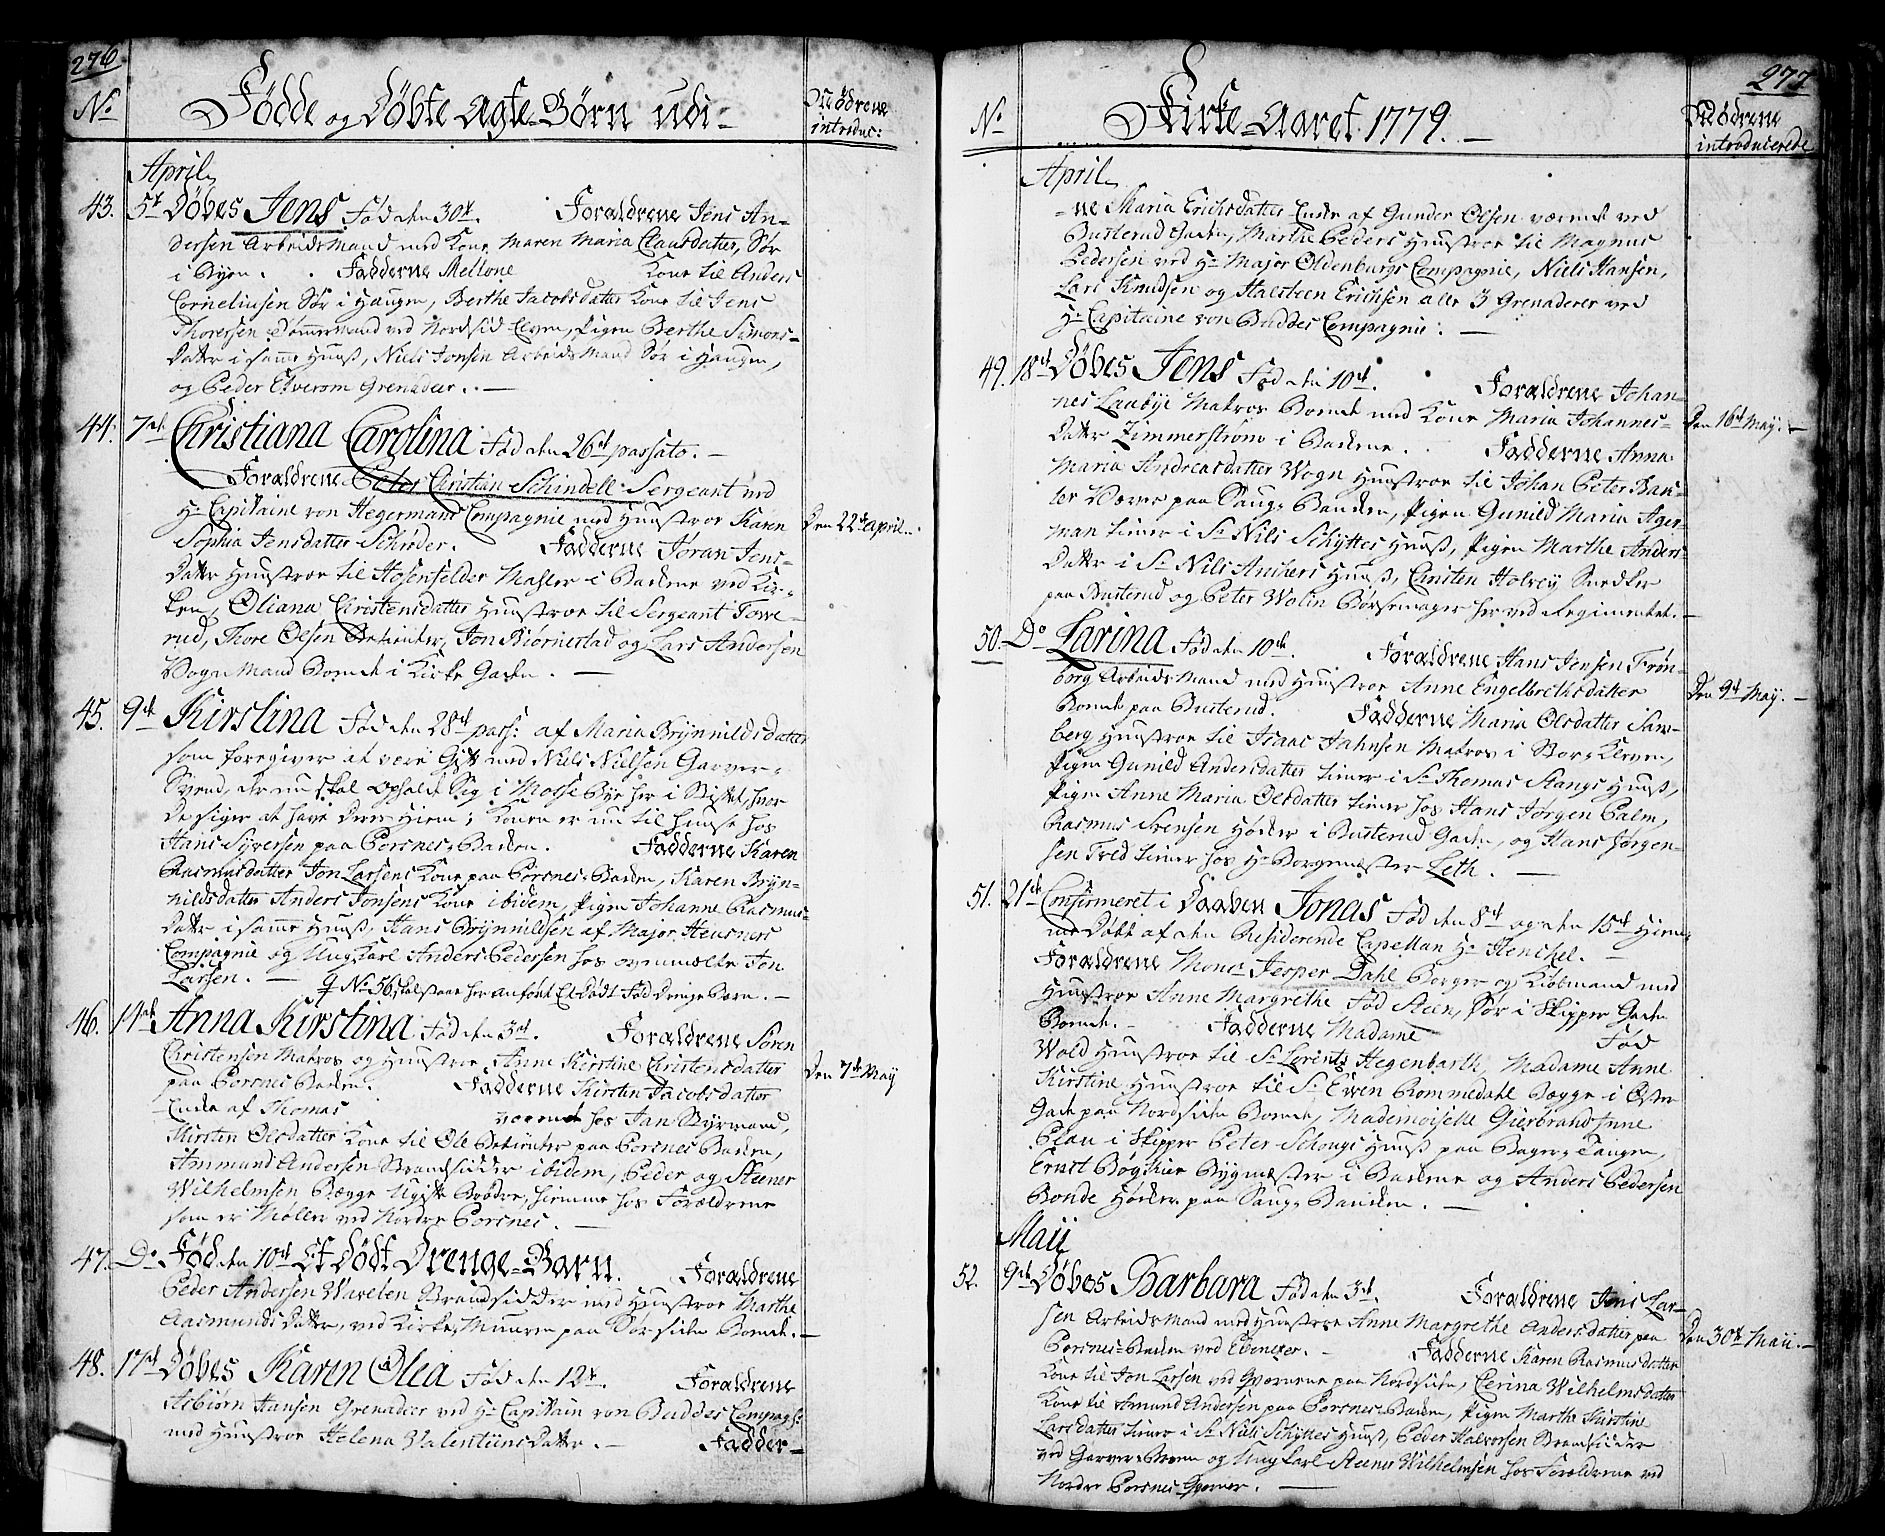 276
No
Fødde og Døbte Ægte-Børn udi-
Mødrene
introduc:
April,
43. 5t Døbes Jens Fød den 30t. Foraldrene Jens An-
dersen Arbeids Mand med Kone Maren Maria Clausdatter, Sør
i Byen. Fadderne Mellone Kone til Anders
Corneliusen Sør i Haugen, Berthe Jacobsdatter Kone til Jens
Thoresen Tømmermand ved Nordsid Elven, Pigen Berthe Simons-
datter i samme Huus, Niels Jonsen Arbeids Mand Sør i Haugen,
og Peder Elverom Grenadeer. -
44. 7de Christiana Carolina Fød den 26de passato. -
Foraldrene Peter Christian Schindell Sergeant ved
Hr Capitaine von Hegermans Compagnie med Hustroe Karen
Den 22de April.
Sophia Jensdatter Schrøder. Fadderne Jøran Jens-
datter Hustroe til Hosenfelder Mahler i Bakkene ved Kir-
ken, Oliana Christensdatter Hustroe til Sergeant Towe-
rud, Thore Olsen Betienter, Jon Biørnestad og Lars Andersen
Vogn Mand Boende i Kirke Gaden. -
45. 9de Kirstina Fød den 28de pass: af Maria Brynnildsdatter
som foregiver at være Gift med Niels Nielsen Garver-
Svend, der nu skal opholde Sig i Mosse Bye her i Stiftet, hvor
De siger at have Deres Hiem; Konen er nu til Huuse hos
Hans Syversen paa Porsnes Bakken. Fadderne Karen
Rasmusdatter Jon Larsens Kone paa Porsnes Bakken, Karen Bryn-
nildsdatter Anders Jonsens Kone ibidem, Pigen Johanne Rasmus-
datter i samme Huus, Hans Brynnildsen af Major Heusners
Compagnie og Ung Karl Anders Pedersen hos ovenmelte Jon
Larsen. - No 56, skal staae her anført Et Dødt Fød Drenge Barn. -
46. 14de Anna Kirstina Fød den 3de. Foraldrene Søren
Christensen Matros og Hustroe Anne Kirstine Christensdatter
Den 7de May
paa Porsnes Bakken. Fadderne Kirsten Jacobsdatter
Enke af Thomas værende hos Jan Styrmand,
Kirsten Olsdatter Kone til Ole Betienter paa Porsnes Bakken,
Ammund Andersen Strandsidder ibidem, Peder og Steener
Wilhelmsen Begge Ugifte Brødre, hiemme hos Forældrene
som er Møller ved Nordre Porsnes. -
47. Do Fød den 10de Et Dødt Drenge-Barn. Foraldrene
Peder Andersen Warelen Strandsidder med Hustroe Marthe
Aasmundsdatter, ved Kirke Muuren paa Sør siden Boende. -
48. 17de Døbes Karen Olea Fød den 12t. Foraldrene
Asbiørn Hansen Grenadeer ved Hr Capitain von Buddes Compagn:
med Hustroe Helena Valentiinsdatter. - Fadder-
277
No
Kirke-Aaret 1779. -
Mødrene
introducerede
April,
-ne Maria Erichsdatter Enke af Gunder Olsen værende ved
Busterud Gaden, Marthe Peders Hustroe til Magnus
Pedersen ved Hr Major Oldenburgs Compagnie, Niels Hansen,
Lars Knudsen og Halsteen Erichsen alle 3 Grenaderer ved
Hr Capitaine von Buddes Compagnie. -
49. 18de Døbes Jens Fød den 10de. Foraldrene Johan-
nes Laubye Matros Boende med Kone Maria Johannes-
Den 16de May. -
datter Zimmerstrøm i Bakkene. Fadderne Anna
Maria Andreasdatter Wogn Hustroe til Johan Peter Ban-
ler Væver paa Saug Banken, Pigen Gunild Maria Ager-
man tiener i Sr Nils Schyttes Huus, Pigen Marthe Anders
datter i Sr Nils Anchers Huus, Christen Holvey Snedker
paa Busterud og Peter Wolin Børsemager her ved Regimentet. -
50. Do Larina Fød den 10de. Foraldrene Hans Jensen Frøn-
borg Arbeids Mand med Hustroe Anne Engelbrethsdatter
Den 9de May. -
Boende paa Busterud. Fadderne Maria Olsdatter Saw-
berg Hustroe til Isaac Jahnsen Matros i Storkleven,
Pigen Gunild Andersdatter tiener i Sr Thomas Stangs Huus,
Pigen Anne Maria Olsdatter tiener hos Hans Jørgen Palm,
Rasmus Svensen Høcker i Busterud Gaden, og Hans Jørgen-
sen Fred tiener hos Hr Borgemester Leth. -
51. 21de Confirmeret i Daaben Jonas Fød den 8de og den 15de Hieme
Døbt af den Residerende Capellan Hr Henchel. -
Foraldrene Monsr Jesper Dahl Borger og Kiøbmand med
Hustroe Anne Margrethe Fød Steen, Sør i Skipper Gaden
Boende. - Fadderne Madame Fød
Wold Hustroe til Sr Lorentz Hegenbarth, Madame Anne
Kirstine Hustroe til Sr Ewen Rommedahl Begge i Øster
Gade paa Nordsiden Boende, Mademoiselle Gierbrand Inne
Plau i Skipper Peter Schougs Huus paa Bager-Tangen,
Ernst Bøgskier Bygmester i Bakkene og Anders Pedersen
Bonde Høcker paa Saug Banken. -
Maii
52. 9de Døbes Barbara Fød den 3de. Foraldrene Jens Lar-
sen Arbeids Mand med Hustroe Anne Margrethe Andersdatter paa
Den 30te Maii. -
Porsnes-Bakken ved Ebenezer. - Fadderne Karen Rasmusdatter
Kone til Jon Larsen ved Qværnene paa Nordsiden, Cerina Wilhelmsdatter
Kone til Amund Andersen paa Porsnes Bakken, Pigen Marthe Kirstine
Larsdatter tiener i Sr Niels Schyttes Huus, Peder Halvorsen Strandsidder
ved Garver-Broen og Ung Karl Steener Wilhelmsen hos Forældrene ved
Nordre Porsnes Qværner. -